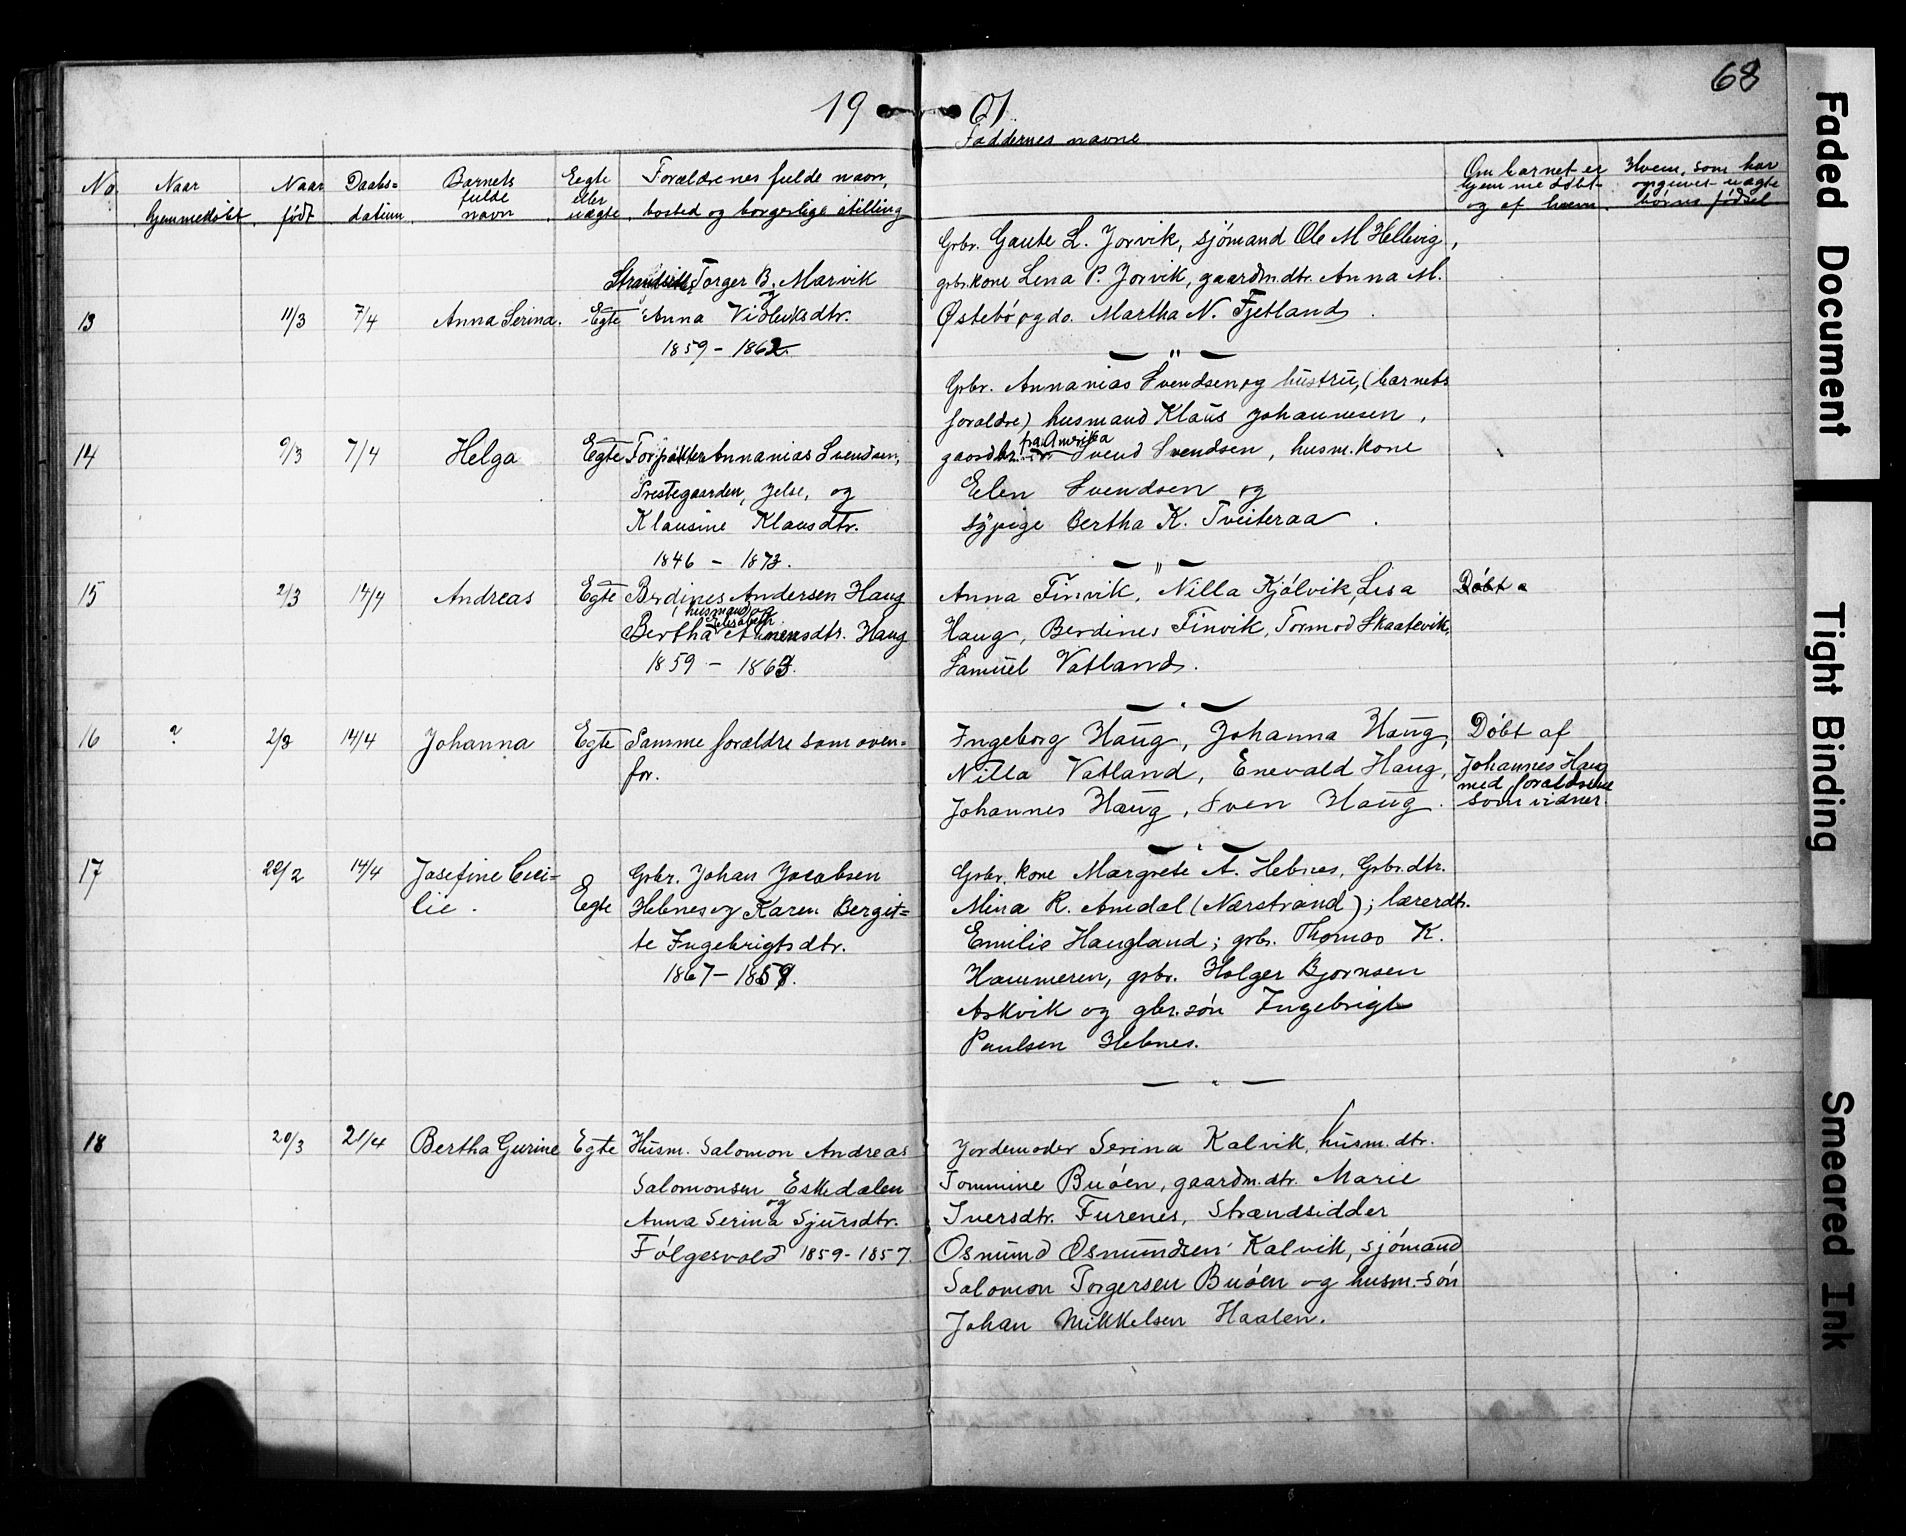 68
19 01.
Faddernes navne
No. Naar hjemmedøbt. Naar født Daabs= datum Barnets fulde navn Egte eller uægte Forældrenes fulde navn, bosted og borgerlige stilling
Om barnet er hjemmedøbt og af hvem. Hvem, som har opgivet uægte børns fødsel
13 11/3 7/4 Anna Serina. Egte
Torger B. Marvik
og
Anna
1859 - 1862.
Gbr. Gaute L. Jorvik, sjömand Ole M Hellvig,
gbr.kone Lena P. Jorvik, gaardm.dtr. Anna M.
Østebö og do. Martha N. Fjetland.
— " —
14 9/3 7/4 Helga Egte
Forpakter Annanias Svendsen,
Prestegaarden, Jelse, og
Klausine Klausdtr.
1846 - 1873.
Gbr. Annanias Svendsen og hustru, (barnets
foraldre) husmand Klaus Johannesen,
fra Amerika
Svend Svendsen, husm.kone
Elen Svendsen og
pige Bertha K. Tveiteraa.
— " —
15 2/3 14/4 Andreas Egte
Berdines Andersen Haug
husmand og
Elisabeth
Bertha Haug
1859 - 1863.
Anna Finvik, Nilla Kjölvik, Lisa
Haug, Berdines Finvik, Tormod Skaatevik,
Samuel Vatland.
Döbt
— " —
16 ? 2/3 14/4 Johanna Egte
Samme forældre som oven=
for.
Ingeborg Haug, Johanna Haug,
Nilla Vatland, Enevald Haug,
Johannes Haug, Sven Haug.
Döbt af
Johannes Haug
med foraldrene
som vidner.
— " —
17 22/2 14/4 Josefine Ceci=
lie. Egte
Gbr. Johan Jacobsen
Hebnes og Karen Bergit=
te Ingebrigtsdtr.
1867 - 1859.
Gbr. kone Margrete A. Hebnes, Gbr.dtr.
Mina R. Amdal (Nærstrand); lærerdt.
Emilie Haugland; gbr. Thomas K.
Hammeren, gbr. Holger Bjornsen
Askvik og gbr.sön Ingebrigt
Paulsen Hebnes.
— " —
18 20/3 21/4 Bertha Gurine Egte
Husm. Salomon Andreas
Salomonsen Eskedalen
og
Anna Serina Sjursdtr.
Fölgesvold 1859 - 1857.
Jordemoder Serina Kalvik, husm.dtr.
Tommine Buöen, gaardm.dtr. Marie
Iversdtr. Furenes, Strandsidder
Osmund Osmundsen Kalvik, sjömand
Salomon Torgersen Buöen og husm.-sön
Johan Mikkelsen Haalen.
Faded Document
Tight Binding
Smeared Ink